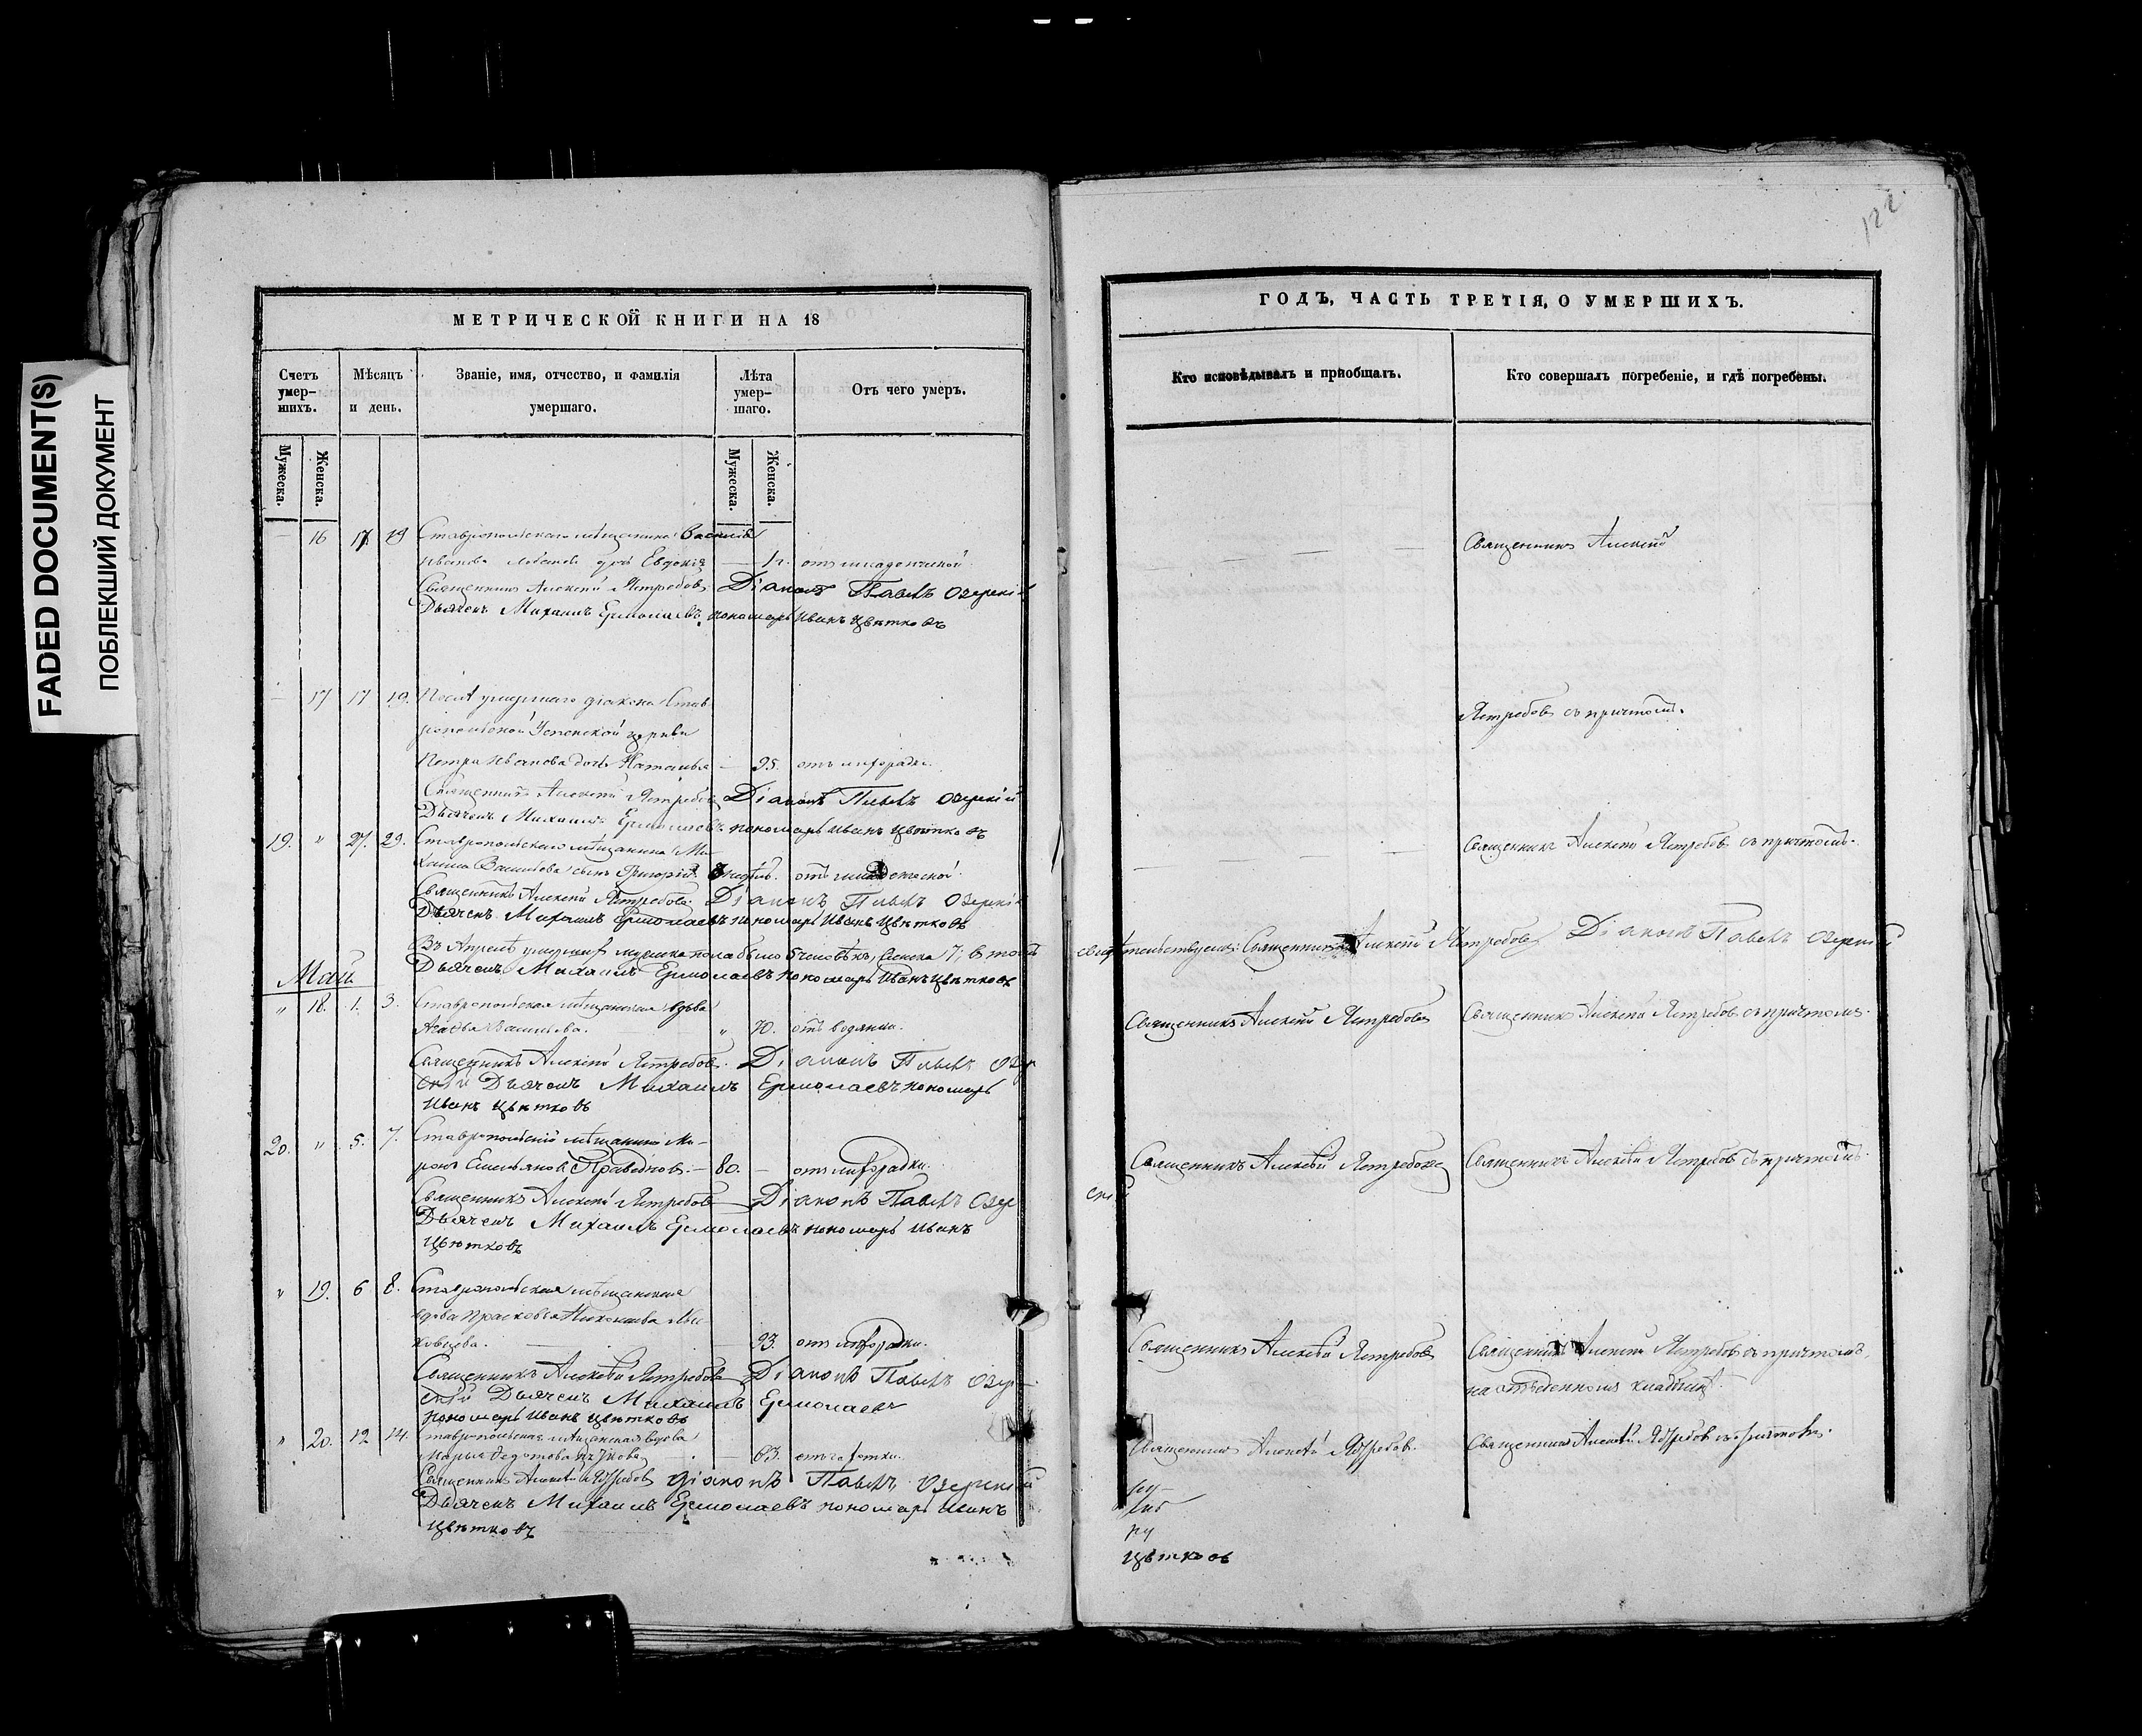 FADED DOCUMENT(S)
ПОБЛЕКШИЙ ДОКУМЕНТ
МЕТРИЧЕСКОЙ КНИГИ НА 18
Счетъ умер-шихъ.
Мѣсяцъ и день.
Званіе, имя, отчество, и фамилія умершаго.
Лѣта умер-шаго.
Отъ чего умеръ.
Мужеска.
Женска.
Мужеска.
Женска.
— 16 17. 19 Ставропольскаго мѣщанина Василія
Иванова дочь Евдокія — 1 г. отъ младенческой.
Священникъ Алексѣй Ястребовъ Діаконъ Павелъ Озерскій
Дьячекъ Михаилъ Ермолаевъ, пономарь Иванъ Цвѣтковъ
— 17 17 19. Послѣ умершаго діакона Став-
ропольской Успенской церкви
Петра Иванова дочь Наталья — 95. отъ лихорадки.
Священникъ Алексѣй Ястребовъ Діаконъ Павелъ Озерскій
Дьячекъ Михаилъ Ермолаевъ пономарь Иванъ Цвѣтковъ
19. " 27. 29. Ставропольскаго мѣщанина Ми-
хаила Васильева сынъ Григорій. недѣль. отъ младенческой.
Священникъ Алексѣй Ястребовъ. Діаконъ Павелъ Озерскій
Дьячекъ Михаилъ Ермолаевъ пономарь Иванъ Цвѣтковъ
Въ Апрѣлѣ умершихъ мужеска пола было человѣкъ, женска 7; въ томъ
Дьячекъ Михаилъ Ермолаевъ пономарь Иванъ Цвѣтковъ
Май
" 18. 1. 3. Ставропольская мѣщанская вдова
Васильева. " 70. отъ водянки.
Священникъ Алексѣй Ястребовъ. Діаконъ Павелъ Озер
скій Дьячекъ Михаилъ Ермолаевъ пономарь
Иванъ Цвѣтковъ
20. " 5. 7. Ставропольскій мѣщанинъ Ми-
ронъ Емельяновъ Праведновъ. — 80. — отъ лихорадки.
Священникъ Алексѣй Ястребовъ Діаконъ Павелъ Озер
Дьячекъ Михаилъ Ермолаевъ пономарь Иванъ
Цвѣтковъ
" 19. 6 8. Ставропольская мѣщанская
вдова Прасковья
93. отъ лихорадки.
Священникъ Алексѣй Ястребовъ Діаконъ Павелъ Озер-
скій Дьячекъ Михаилъ Ермолаевъ
пономарь Иванъ Цвѣтковъ
" 20. 12 14. Ставропольская мѣщанская вдова
Марья Федотова — 63. отъ чахотки.
Священникъ Алексѣй Ястребовъ Діаконъ Павелъ Озерскій
Дьячекъ Михаилъ Ермолаевъ пономарь Иванъ
Цвѣтковъ
122.
ГОДЪ, ЧАСТЬ ТРЕТІЯ, О УМЕРШИХЪ.
Кто исповѣдывалъ и пріобщалъ.
Кто совершалъ погребеніе, и гдѣ погребены.
Священникъ Алексѣй
Ястребовъ съ причтомъ.
Священникъ Алексѣй Ястребовъ съ причтомъ.
свидѣтельствуемъ: Священникъ Алексѣй Ястребовъ Діаконъ Павелъ Озерскій
Священникъ Алексѣй Ястребовъ
Священникъ Алексѣй Ястребовъ съ причтомъ.
Священникъ Алексѣй Ястребовъ
Священникъ Алексѣй Ястребовъ съ причтомъ.
скій
Священникъ Алексѣй Ястребовъ
Священникъ Алексѣй Ястребовъ съ причтомъ,
на отведенномъ кладбищѣ.
Священникъ Алексѣй Ястребовъ.
Священникъ Алексѣй Ястребовъ съ причтомъ.
Цвѣтковъ